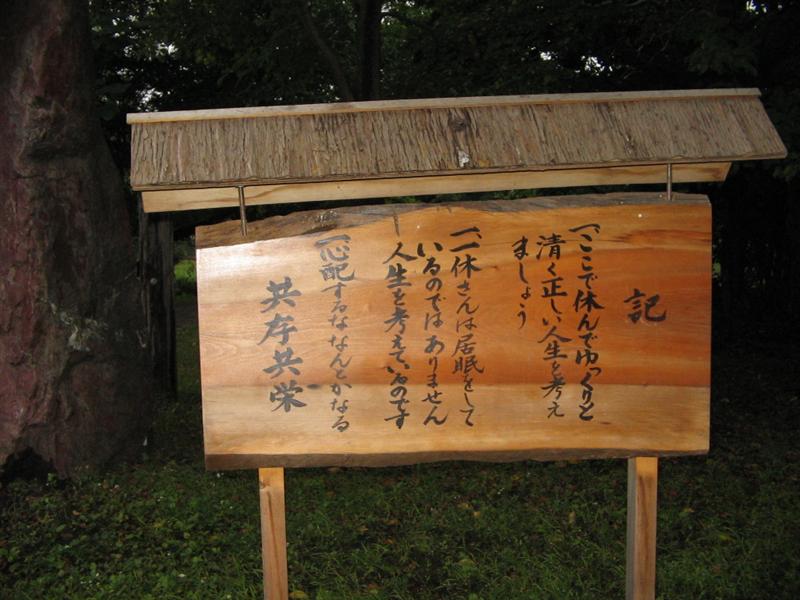 記
一、ここで休んでゆっくりと
清く正しい人生を考え
ましょう
一、一休さんは居眠をして
いるのではありません
人生を考えているのです
一、心配するななんとかなる
共存共栄